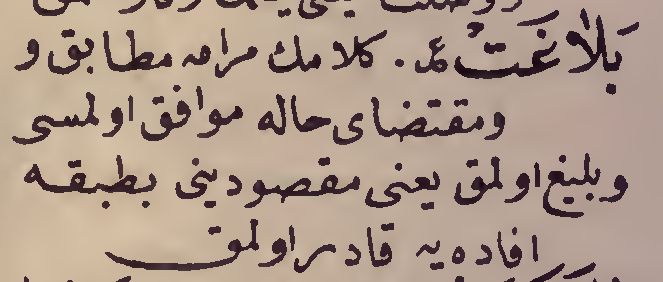 بَلَاغَتْ ع. كلامك مرامه مطابق و
ومقتضاى حاله موافق اولمسى
وبليغ اولمق يعنى مقصودينى بطبقه
افاده يه قادر اولمق